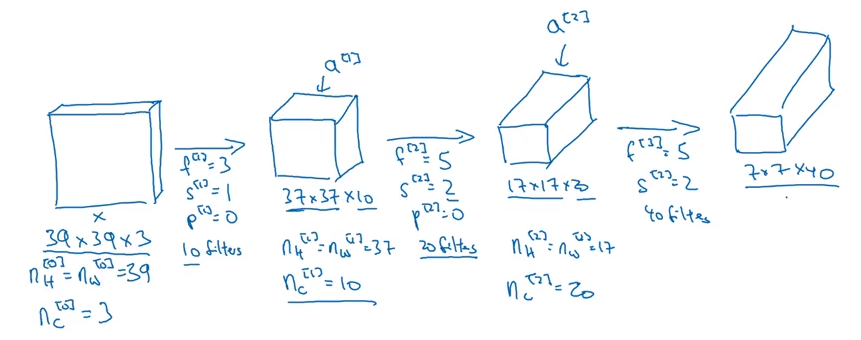 a^[1]
a^[2]
x
39 x 39 x 3
n_H^[0] = n_W^[0] = 39
n_C^[0] = 3
f^[1] = 3
s^[1] = 1
p^[1] = 0
10 filters
37 x 37 x 10
n_H^[1] = n_W^[1] = 37
n_C^[1] = 10
f^[2] = 5
s^[2] = 2
p^[2] = 0
20 filters
17 x 17 x 20
n_H^[2] = n_W^[2] = 17
n_C^[2] = 20
f^[3] = 5
s^[2] = 2
40 filters
7 x 7 x 40